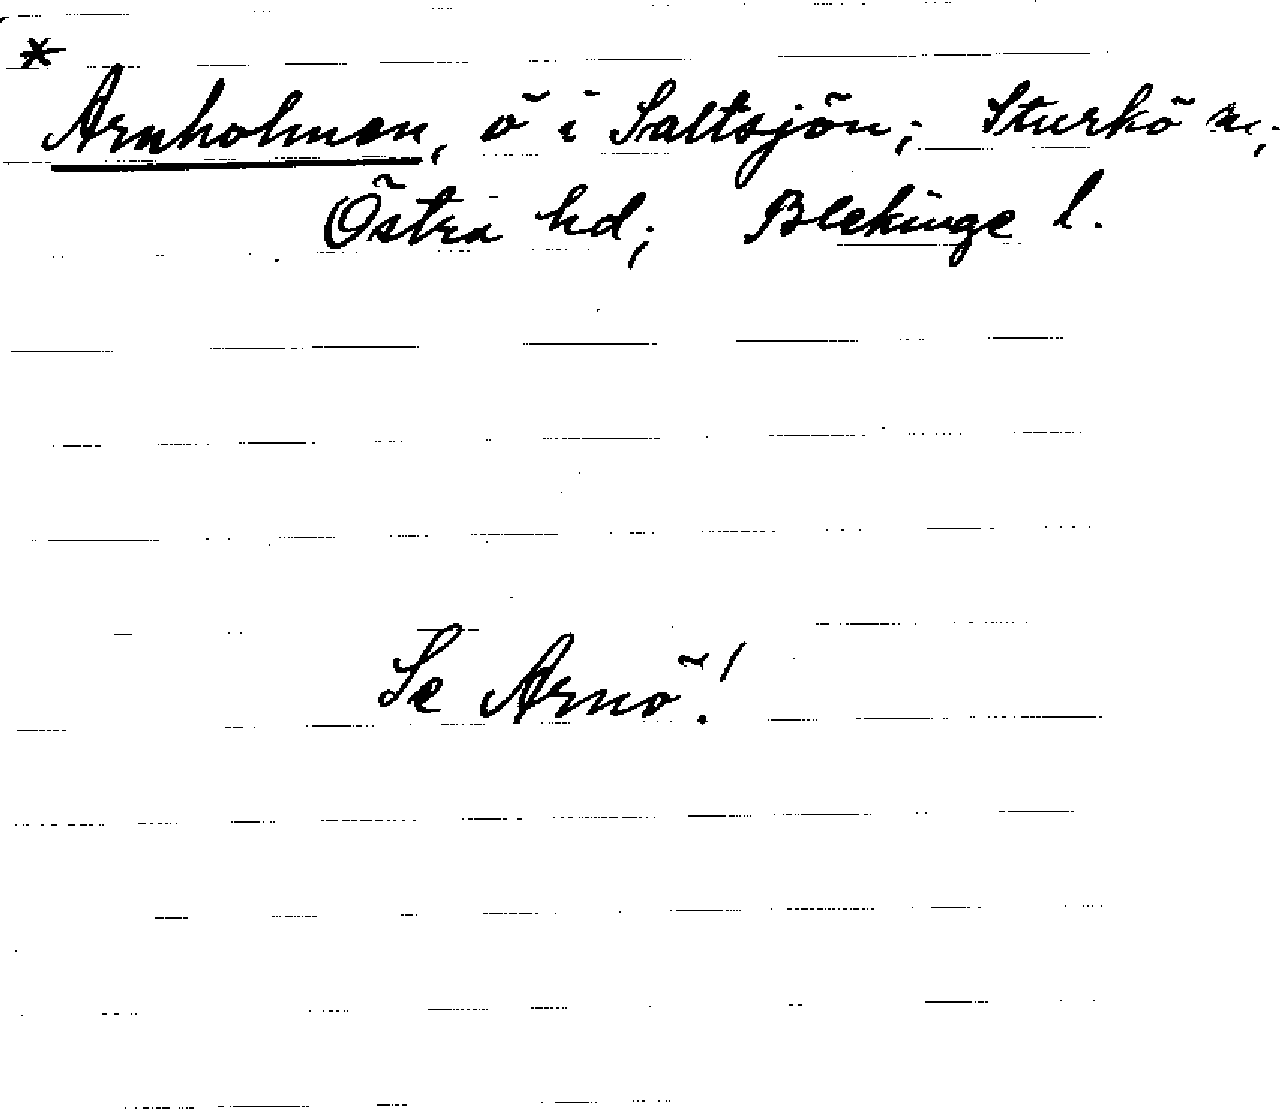 *
Arnholmen, ö i Saltsjön; Sturkö sn;
Östra hd; Blekinge l.
Se Arnö!